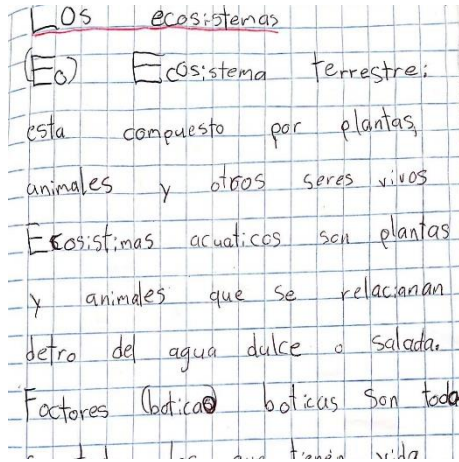 Los ecosistemas
(Eo) Ecosistema terrestre:
esta compuesto por plantas,
animales y otros seres vivos
Ecosistimas acuaticos son plantas
y animales que se relacianan
detro del agua dulce o salada.
Factores (boticao) boticas son toda
que tienen vida